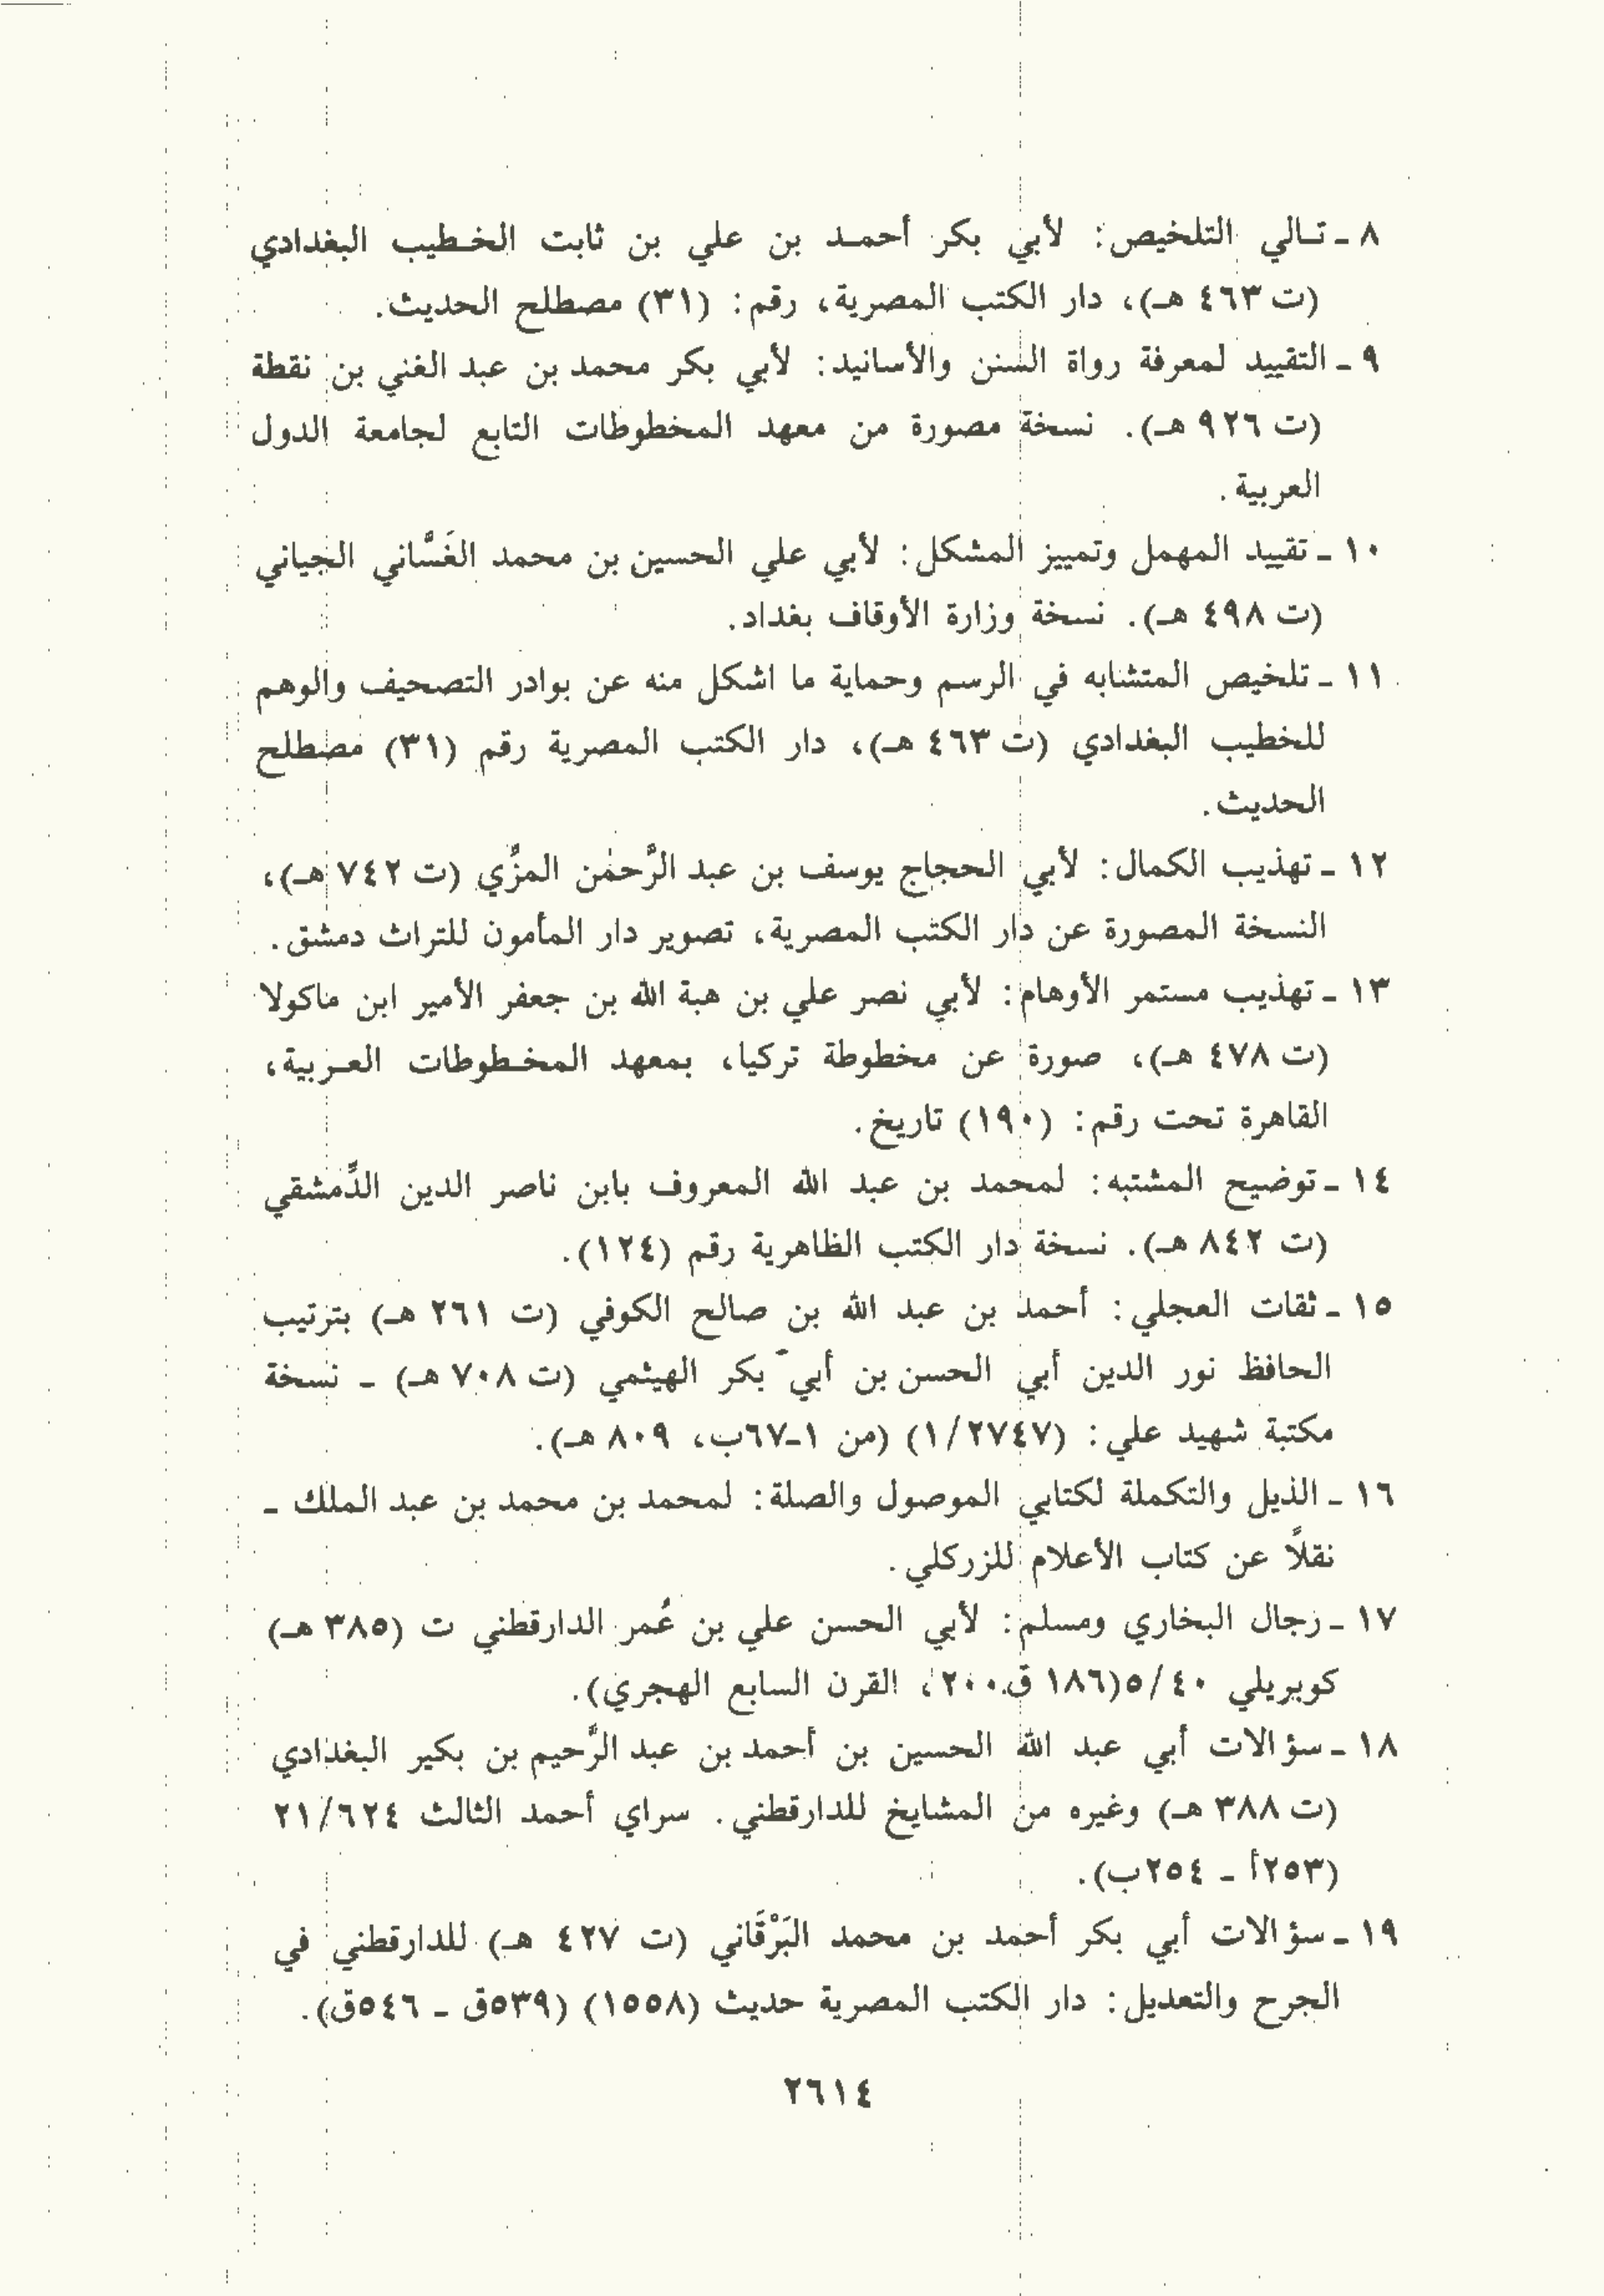 ٨ ـ تالي التلخيص: لأبي بكر أحمد بن علي بن ثابت الخطيب البغدادي
(ت ٤٦٣ هـ)، دار الكتب المصرية، رقم: (٣١) مصطلح الحديث.
٩ ـ التقييد لمعرفة رواة السنن والأسانيد: لأبي بكر محمد بن عبد الغني بن نقطة
(ت ٩٢٦ هـ). نسخة مصورة من معهد المخطوطات التابع لجامعة الدول
العربية.
١٠ ـ تقييد المهمل وتمييز المشكل: لأبي علي الحسين بن محمد الغَسَّاني الجياني
(ت ٤٩٨ هـ). نسخة وزارة الأوقاف بغداد.
١١ ـ تلخيص المتشابه في الرسم وحماية ما اشكل منه عن بوادر التصحيف والوهم
للخطيب البغدادي (ت ٤٦٣ هـ)، دار الكتب المصرية رقم (٣١) مصطلح
الحديث.
١٢ ـ تهذيب الكمال: لأبي الحجاج يوسف بن عبد الرَّحمٰن المزِّي (ت ٧٤٢ هـ)،
النسخة المصورة عن دار الكتب المصرية، تصوير دار المأمون للتراث دمشق.
١٣ ـ تهذيب مستمر الأوهام: لأبي نصر علي بن هبة الله بن جعفر الأمير ابن ماكولا
(ت ٤٧٨ هـ)، صورة عن مخطوطة تركيا، بمعهد المخطوطات العربية،
القاهرة تحت رقم: (١٩٠) تاريخ.
١٤ ـ توضيح المشتبه: لمحمد بن عبد الله المعروف بابن ناصر الدين الدِّمشقي
(ت ٨٤٢ هـ). نسخة دار الكتب الظاهرية رقم (١٢٤).
١٥ ـ ثقات العجلي: أحمد بن عبد الله بن صالح الكوفي (ت ٢٦١ هـ) بترتيب
الحافظ نور الدين أبي الحسن بن أبي بكر الهيثمي (ت ٧٠٨ هـ) ـ نسخة
مكتبة شهيد علي: (١/٢٧٤٧) (من ١ـ٦٧ب، ٨٠٩ هـ).
١٦ ـ الذيل والتكملة لكتابي الموصول والصلة: لمحمد بن محمد بن عبد الملك ـ
نقلاً عن كتاب الأعلام للزركلي.
١٧ ـ رجال البخاري ومسلم: لأبي الحسن علي بن عُمر الدارقطني ت (٣٨٥ هـ)
كوبريلي ٥/٤٠(١٨٦ ق.٢٠٠، القرن السابع الهجري).
١٨ ـ سؤالات أبي عبد الله الحسين بن أحمد بن عبد الرَّحيم بن بكير البغدادي
(ت ٣٨٨ هـ) وغيره من المشايخ للدارقطني. سراي أحمد الثالث ٢١/٦٢٤
(٢٥٣أ ـ ٢٥٤ب).
١٩ ـ سؤالات أبي بكر أحمد بن محمد البَرْقَاني (ت ٤٢٧ هـ) للدارقطني في
الجرح والتعديل: دار الكتب المصرية حديث (١٥٥٨) (٥٣٩ق ـ ٥٤٦ق).
٢٦١٤